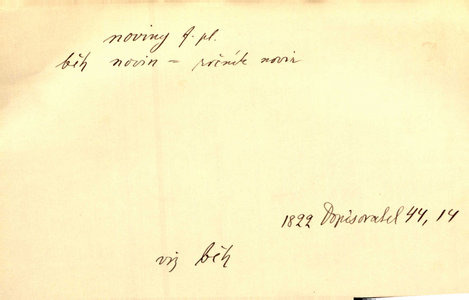 noviny f. pl.
běh novin = ročník novin
1822 Dopisovatel 44, 14
viz běh